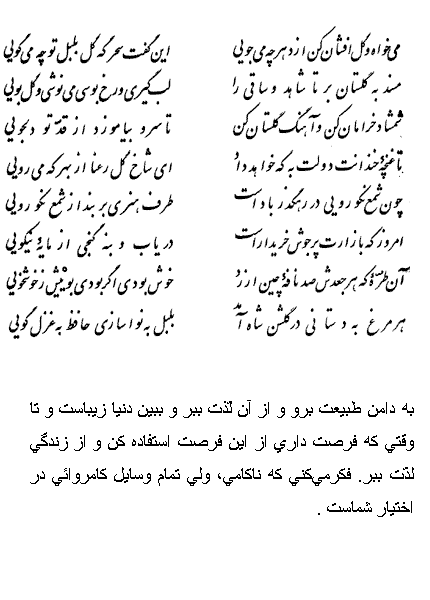 می خواه و گل افشان کن از دهر چه می جویی این گفت سحرگه گل بلبل تو چه می گویی
مسند به گلستان بر تا شاهد و ساقی را لب گیری و رخ بوسی می نوشی و گل بویی
شمشاد خرامان کن و آهنگ گلستان کن تا سرو بیاموزد از قد تو دلجویی
تا غنچهٔ خندانت دولت به که خواهد داد ای شاخ گل رعنا از بهر که می رویی
چون شمع نکورویی در رهگذر باد است طرف هنری بربند از شمع نکورویی
امروز که بازارت پرجوش خریدار است دریاب و بنه گنجی از مایهٔ نیکویی
آن طره که هر جعدش صد نافهٔ چین ارزد خوش بودی اگر بودی بوییش ز خوشخویی
هر مرغ به دستانی در گلشن شاه آمد بلبل به نواسازی حافظ به غزل گویی
به دامن طبيعت برو و از آن لذّت ببر و ببين دنيا زيباست و تا
وقتي كه فرصت داري از اين فرصت استفاده كن و از زندگي
لذّت ببر. فكرمي‌كني كه ناكامي، ولي تمام وسايل كامروائي در
اختيار شماست .